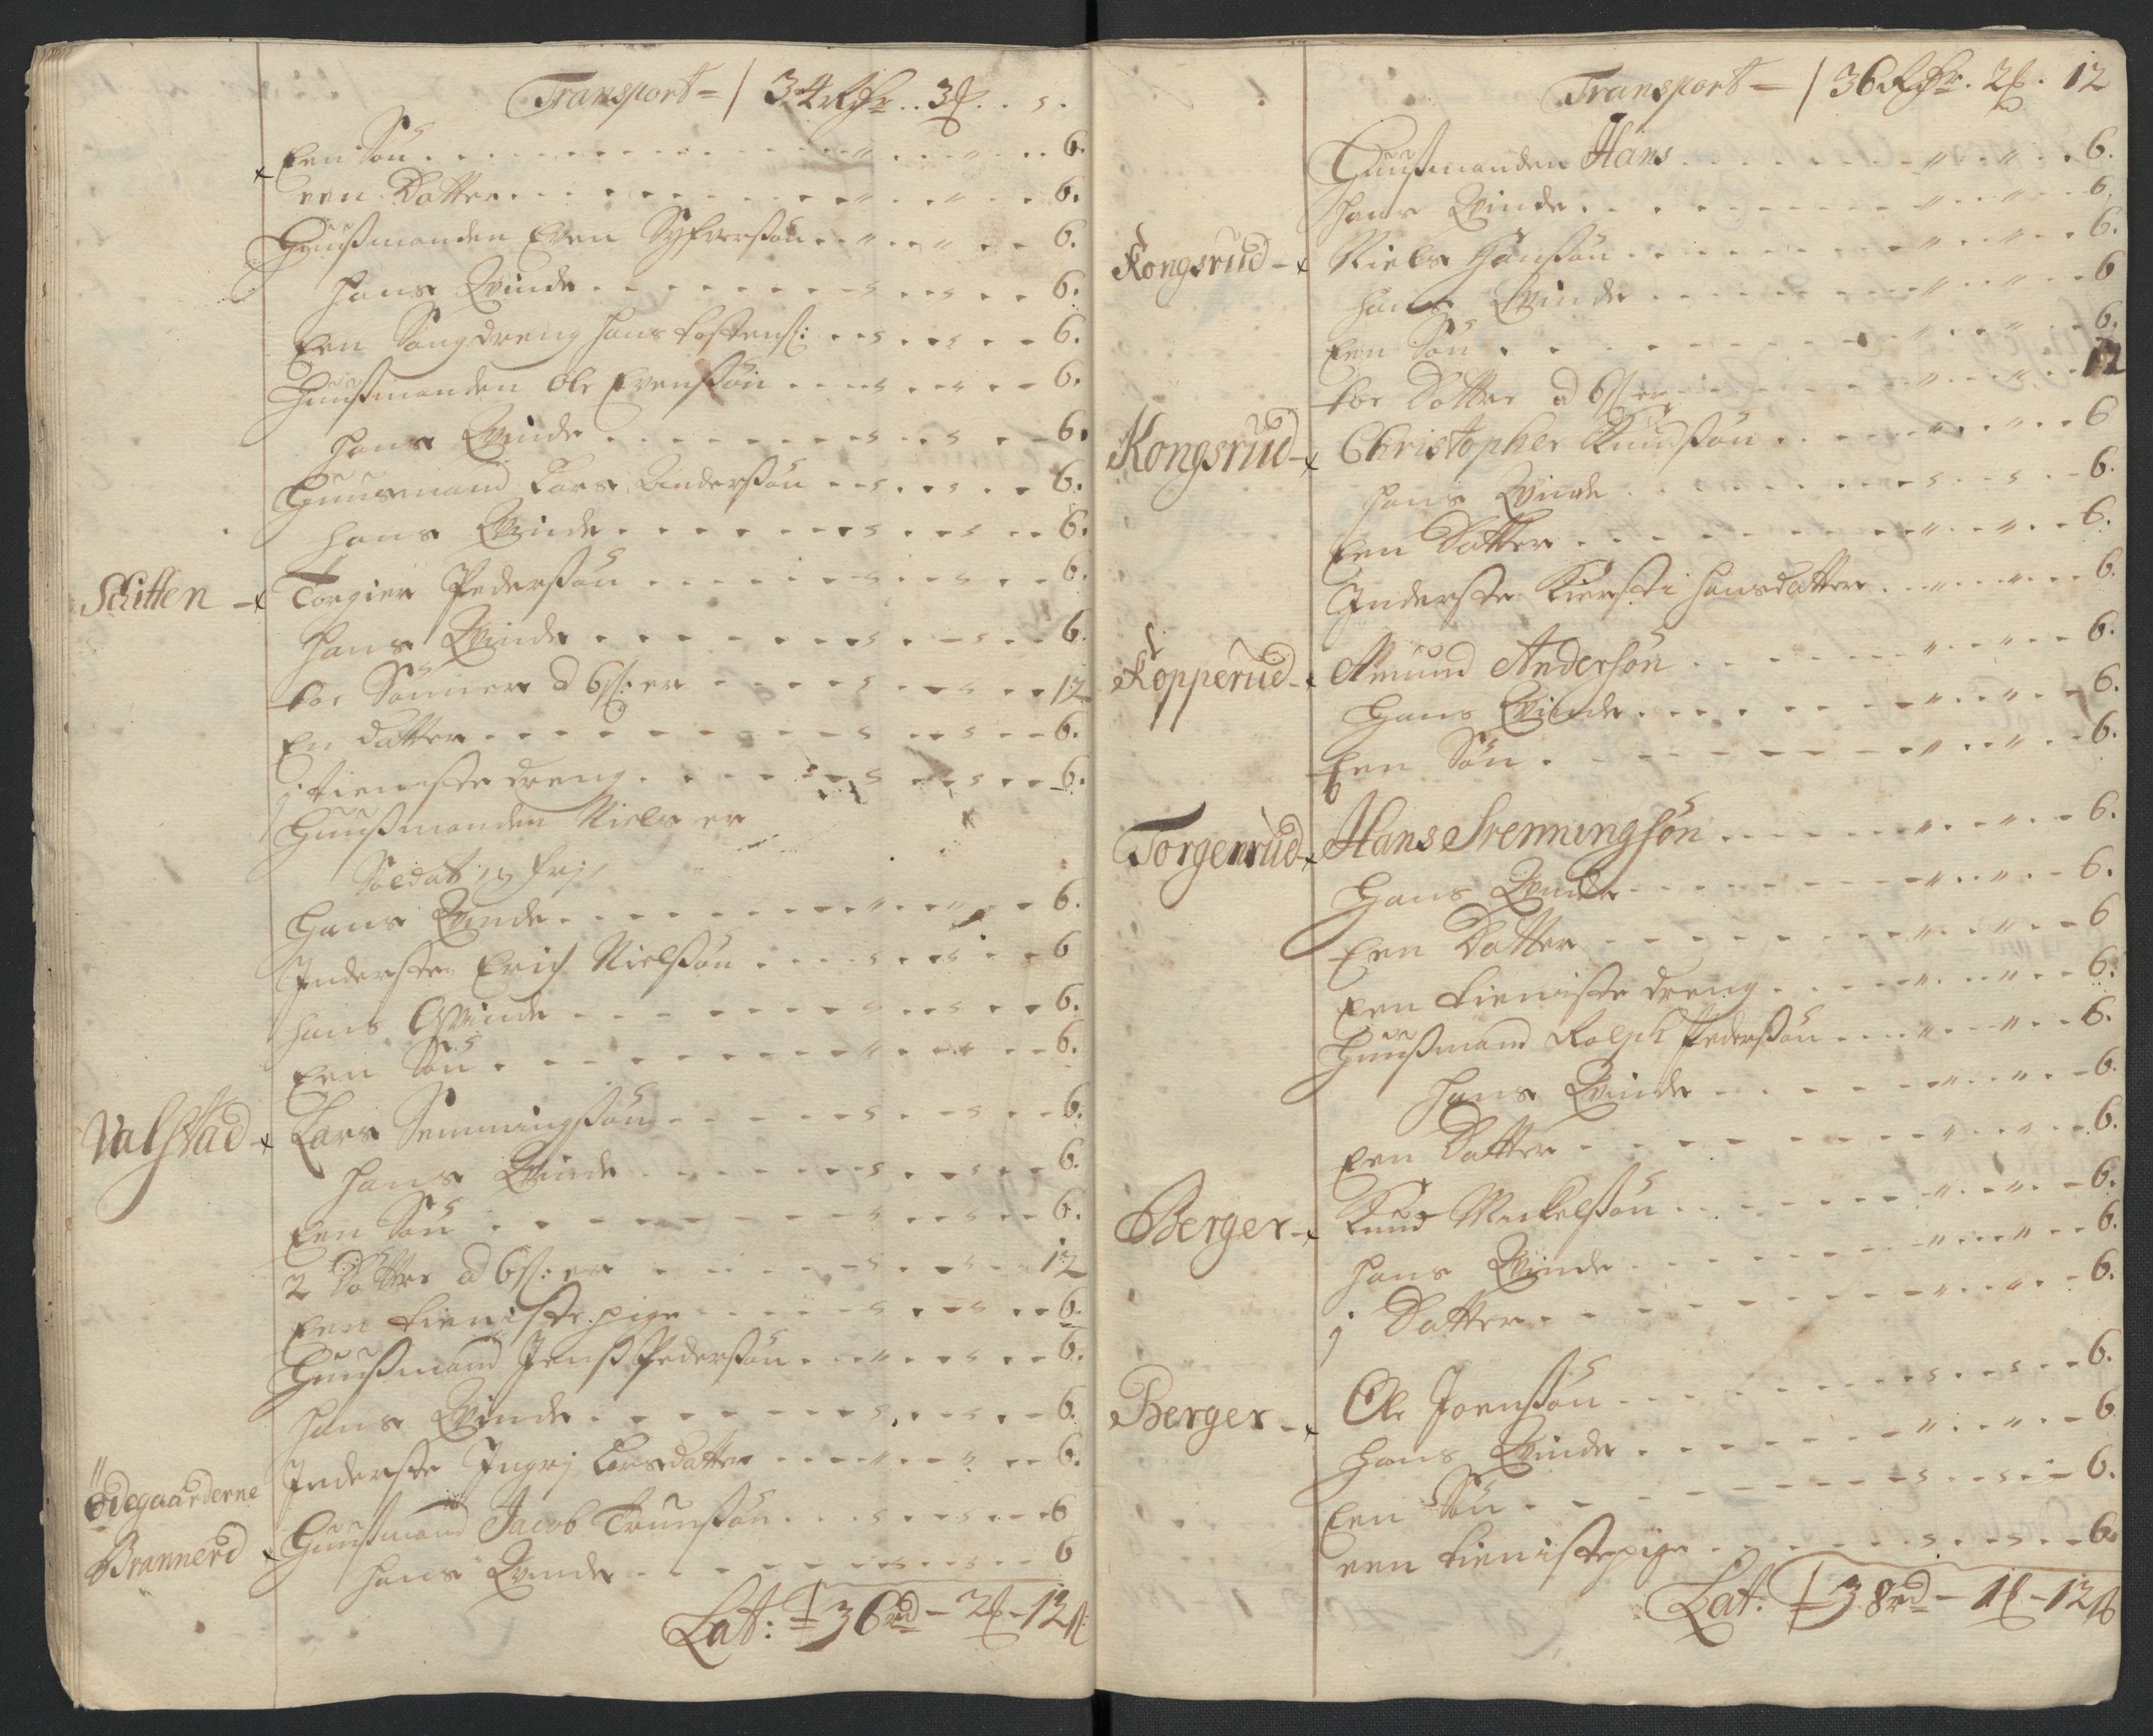 Transport = / 34 Rdr .. 3 ₰ .. s.
Een Søn . . . 6.
een Datter . . . 6.
Huußmanden Even Syfversøn . . . 6.
hans Qvinde . . . 6.
Een dreng hans . . . 6.
Huußmanden Ole Evenssøn . . . 6.
hans Qvinde . . . 6.
Huusmand Lars Anderssøn . . . 6.
hans Qvinde . . . 6.
Schitten - Torgier Pederssøn . . . 6.
hans Qvinde . . . 6.
toe Sønner a 6 s: er . . . 12
En datter . . . 6.
j tieniste dreng . . . 6.
Huußmanden Niels er
Soldat og frj,
Hans Qvinde . . . 6.
Inderste Erich Nielssøn . . . 6
hans Qvinde . . . 6.
Een Søn . . . 6.
Valstad - Lars Semmingssøn . . . 6.
hans Qvinde . . . 6.
Een Søn . . . 6.
2 Døttre a 6 s: er . . . 12
Een tieniste pige . . . 6.
Huußmand Jens Pederssøn . . . 6.
hans Qvinde . . . 6.
Inderste Ingrj Larsdatter . . . 6.
Ödegaarderne
Brannerd Huußmand Jacob Trunssøn . . . 6
hans Qvinde . . . 6
Lat: 36 rd - 2 - 12 s
Transport - / 36 Rdr . 2 . 12
Huußmanden Hans . . . 6.
hans Qvinde . . . 6.
Kongsrud - Niels Hanssøn . . . 6.
hans Qvinde . . . 6
Een Søn . . . 6.
toe Døttre a 6 s er . . . 12
Kongsrud - Christopher Knudssøn . . . 6
hans Qvinde . . . 6.
Een Datter . . . 6.
Inderste Kiersti Hansdatter . . . 6.
Kopperud - Amund Andersøn . . . 6.
Hans Qvinde . . . 6.
Een Søn . . . 6.
Torgenrud - Hans Svenningsøn . . . 6.
Hans Qvinde . . . 6.
Een Datter . . . 6
Een tieniste dreng . . . 6.
Huußmand Rolph Pederssøn . . . 6.
hans Qvinde . . . 6.
Een Datter . . . 6.
Berger - Knud Mickelssøn . . . 6.
hans Qvinde . . . 6.
j Datter . . . 6.
Berger - Ole Joenssøn . . . 6.
hans Qvinde . . . 6
Een Søn . . . 6.
een tienistepige . . . 6.
Lat: 38 rd - 1 - 12 s